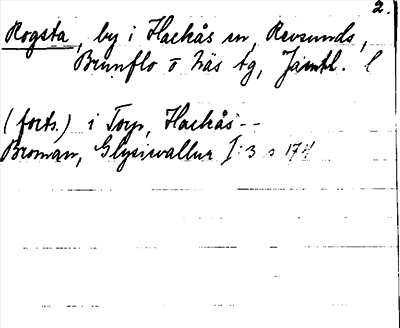 2.
Rogsta, by i Hackås sn, Revsunds,
Brunflo o Näs tg, Jämtl. l
(forts.) i Torp, Hackås --
Broman, Glysisvallur I:3 s 174